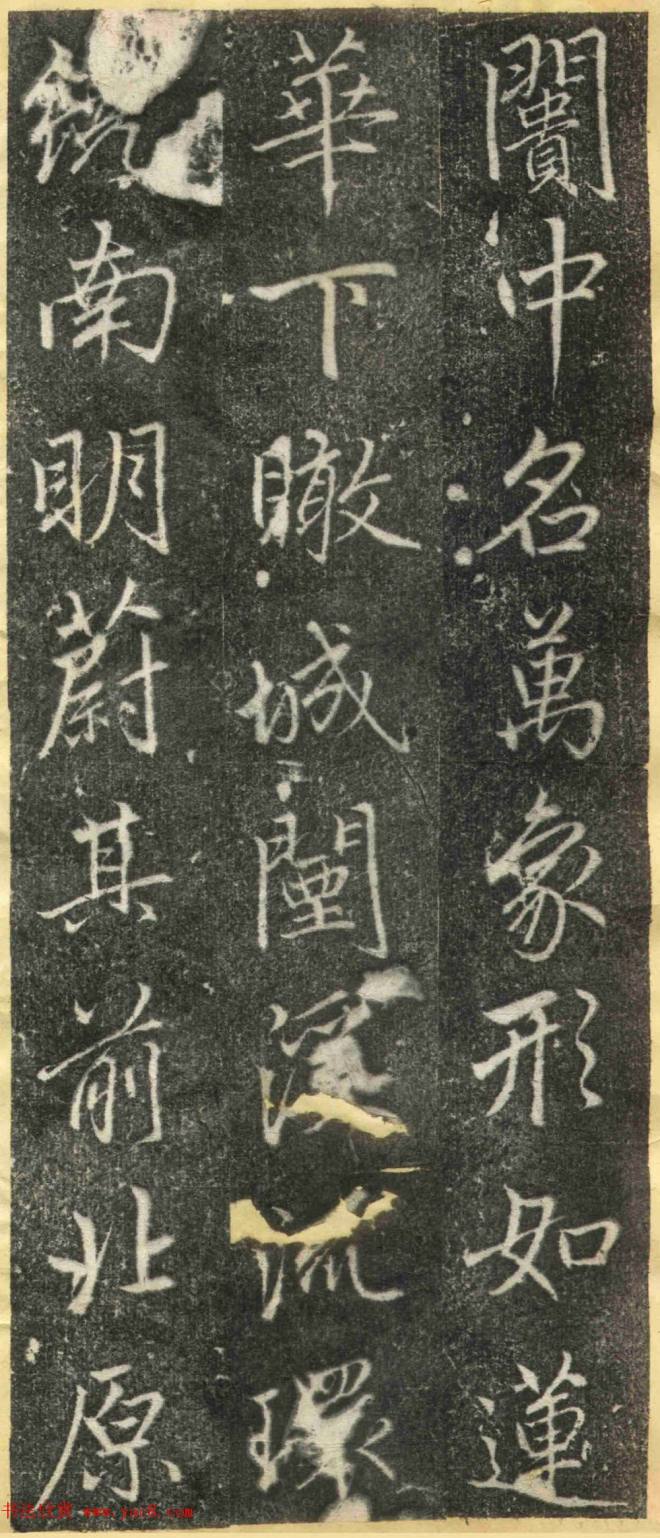 闠冲名萬象形如蓮
華下瞰城闉流環
南明蔚其前北原
书法欣赏 www.yac8.com